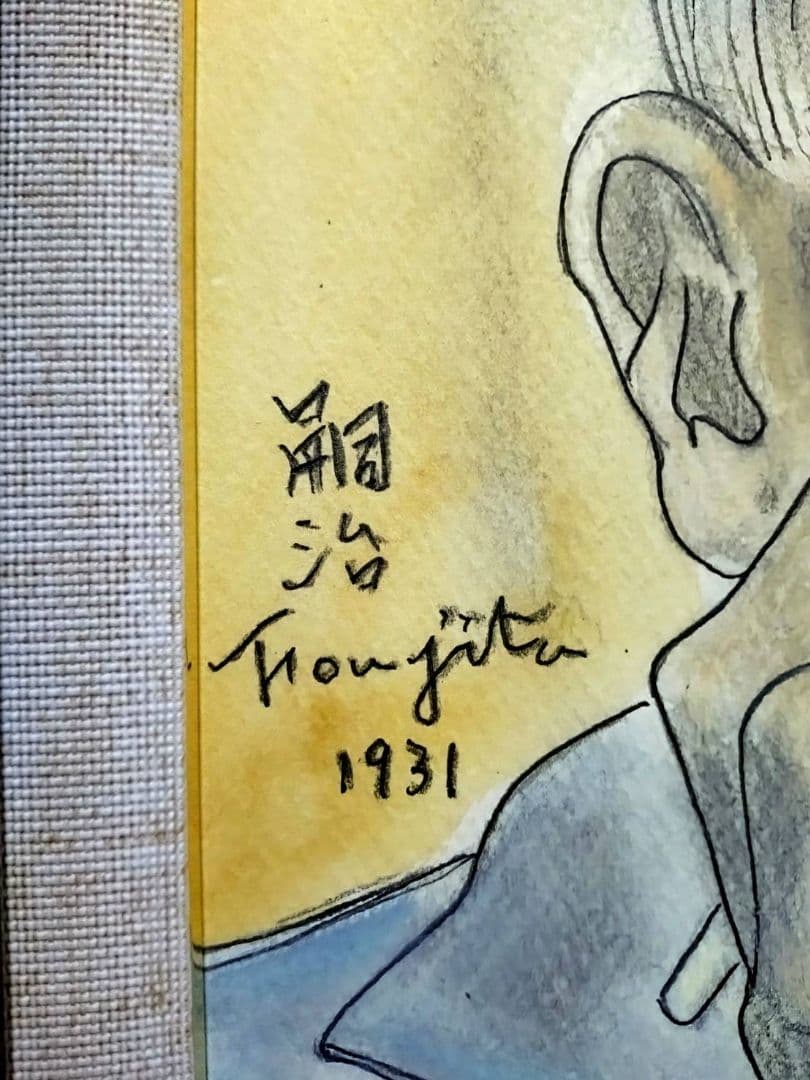 嗣
治
Foujita
1931